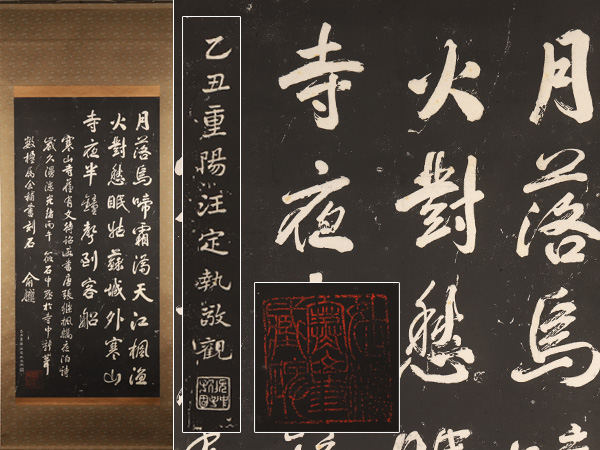 月落烏啼霜滿天江楓漁
火對愁眠姑蘇城外寒山
寺夜半鐘聲到客船
寒山寺舊有文待詔所書唐張繼楓橋夜泊詩
歲久漫漶光緒丙午筱石中丞於寺中新葺
數楹屬余補書刻石
俞樾
乙丑重陽汪定執敬觀
月落烏
火對愁
寺夜